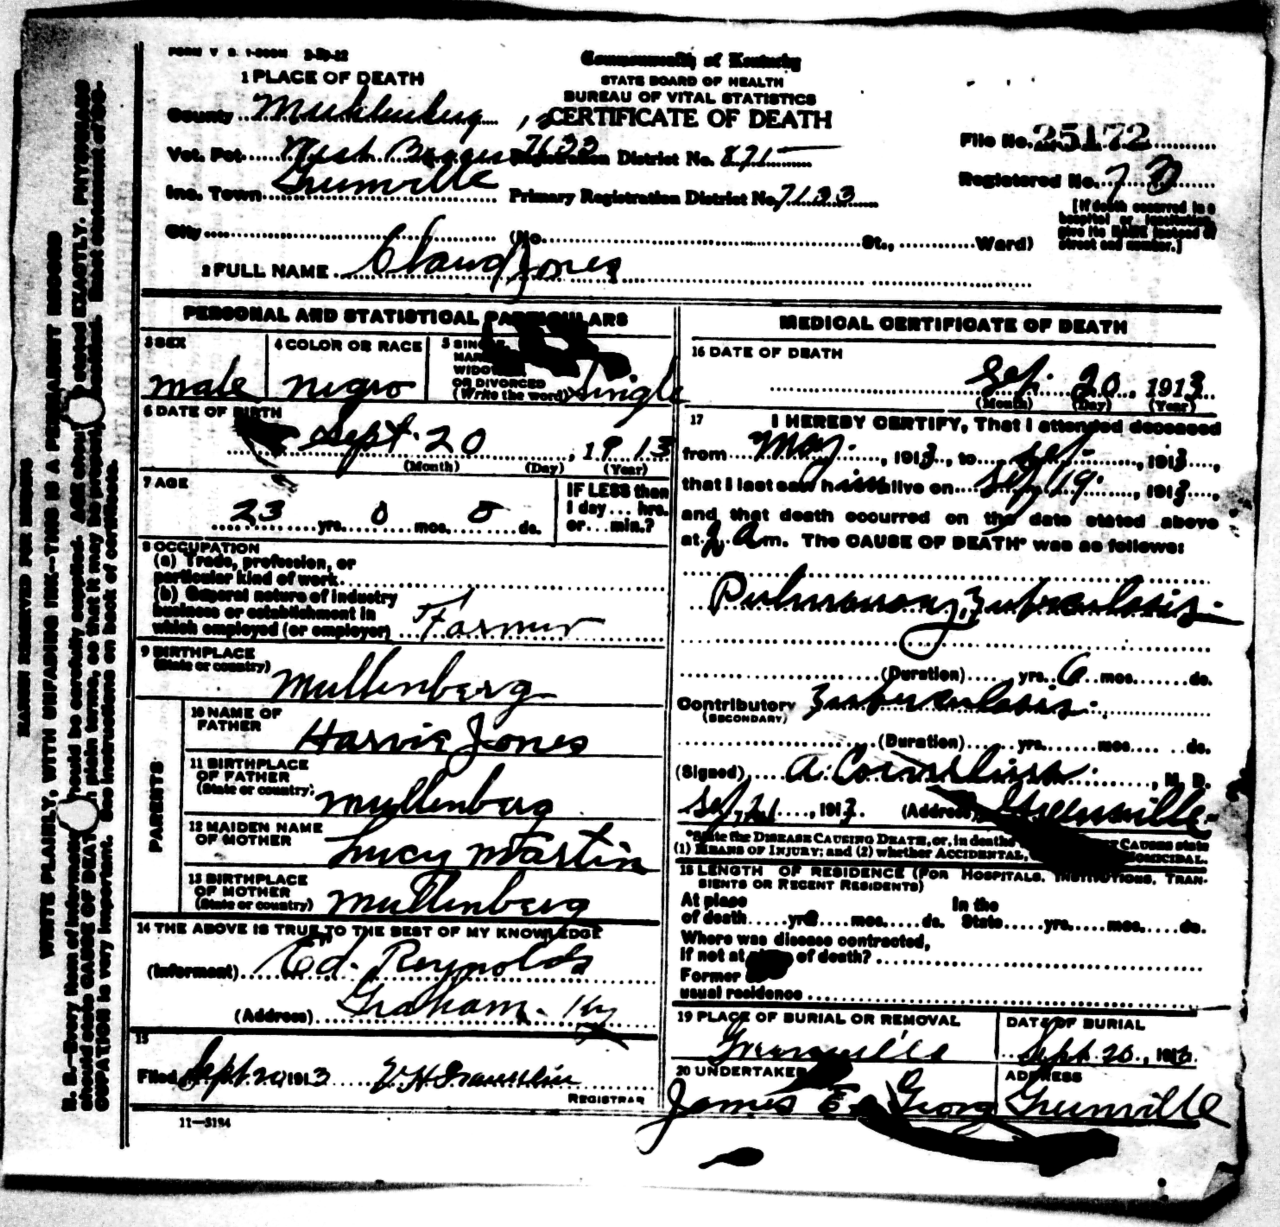 FORM V. S. 1-500M 3-29-12
Commonwealth of Kentucky
STATE BOARD OF HEALTH
BUREAU OF VITAL STATISTICS
CERTIFICATE OF DEATH
1 PLACE OF DEATH
County Muhlenberg
Vot. Pct. West 7133 Registration District No. 871
Inc. Town Grunville Primary Registration District No. 7133
City (No. St., Ward)
File No. 25172
Registered No. 70
[If death occurred in a hospital or institution give its NAME instead of street and number.]
2 FULL NAME Claud Jones
PERSONAL AND STATISTICAL PARTICULARS
3 SEX
male
4 COLOR OR RACE
nigro
5 SINGLE
MARRIED
WIDOWED
OR DIVORCED
(Write the word) Single
6 DATE OF BIRTH
Sept. 20, 1913
(Month) (Day) (Year)
7 AGE
23 yrs. 0 mos. 0 ds.
IF LESS than
1 day... hrs.
or... min.?
8 OCCUPATION
(a) Trade, profession, or
particular kind of work
(b) General nature of industry
business or establishment in
which employed (or employer) Farmer
9 BIRTHPLACE
(State or country)
Mullenberg
PARENTS
10 NAME OF
FATHER
Harvie Jones
11 BIRTHPLACE
OF FATHER
(State or country)
Mullenberg
12 MAIDEN NAME
OF MOTHER
Lucy Martin
13 BIRTHPLACE
OF MOTHER
(State or country) Mullenberg
14 THE ABOVE IS TRUE TO THE BEST OF MY KNOWLEDGE
(Informant) Ed. Reynolds
(Address) Graham. Ky
15
Filed Sept. 20, 1913
REGISTRAR
11-3184
MEDICAL CERTIFICATE OF DEATH
16 DATE OF DEATH
Sep. 20, 1913
(Month) (Day) (Year)
17 I HEREBY CERTIFY, That I attended deceased
from May, 1913, to Sep., 1913,
that I last saw him alive on Sep 19, 1913,
and that death occurred on the date stated above
at 2 a m. The CAUSE OF DEATH* was as follows:
Pulmonary Tuberculosis
(Duration) yrs. 6 mos. ds.
Contributory Tuberculosis
(SECONDARY)
(Duration) yrs. mos. ds.
(Signed) A. Cornelius, M. D.
Sep. 21, 1913 (Address) Greenville
*State the DISEASE CAUSING DEATH, or, in deaths CAUSES state
(1) MEANS OF INJURY; and (2) whether ACCIDENTAL, HOMICIDAL.
18 LENGTH OF RESIDENCE (FOR HOSPITALS, INSTITUTIONS, TRANSIENTS OR RECENT RESIDENTS)
At place
of death yrs. mos. ds. In the State yrs. mos. ds.
Where was disease contracted,
if not at place of death?
Former
usual residence
19 PLACE OF BURIAL OR REMOVAL
Greenville
DATE OF BURIAL
Sept. 20, 1913
20 UNDERTAKER
James E. Georg
ADDRESS
Grunville
MARGIN RESERVED FOR BINDING
WRITE PLAINLY, WITH UNFADING INK—THIS IS A PERMANENT RECORD
N. B.—Every item of information should be carefully supplied. AGE should be stated EXACTLY. PHYSICIANS
should state CAUSE OF DEATH in plain terms, so that it may be properly classified. Exact statement of OC-
CUPATION is very important. See instructions on back of certificate.